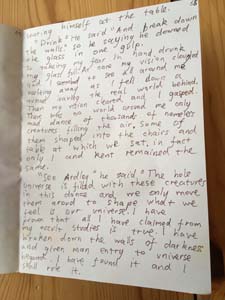 himself at the table.
"Drink" He said "And break down
the walls." so be saying he downed
the glass in one gulp.
taking my fear in hand drunk
my glass my vision clouded
and seemed to see all around me
melting away as I fell down a
the real world behind.
Then my vision cleared and I gasped.
There was no world around me only
the dance of thousands of nameless
creatures filling the air. Some of
them shaped into the chairs and
table at which we sat, in fact
only I and Kent remained the
same.
"See Ardley" he said "The hole
universe is filled with these creatures
in this dance and we only move
them around to shape what we
feel is our universe. I have
prove that all I have claimed from
my occult studies is true. I have
broken down the walls of darkness
and given man entry to universe
I have found it and I
shall rule it.